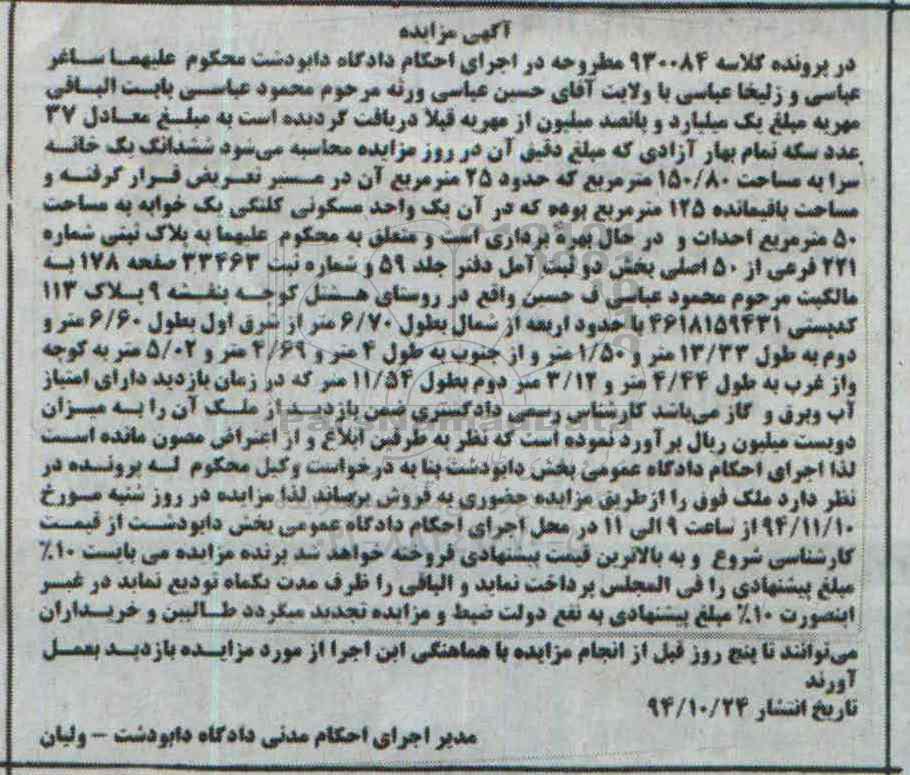 آگهی مزایده
در پرونده کلاسه ۹۳۰۰۸۴ مطروحه در اجرای احکام دادگاه دابودشت محکوم علیهما ساغر
عباسی و زلیخا عباسی با ولایت آقای حسین عباسی ورثه مرحوم محمود عباسی بابت الباقی
مهریه مبلغ یک میلیارد و پانصد میلیون از مهریه قبلا دریافت گردیده است به مبلغ معادل ۳۷
عدد سکه تمام بهار آزادی که مبلغ دقیق آن در روز مزایده محاسبه می‌شود ششدانگ یک خانه
سرا به مساحت ۱۵۰/۸۰ مترمربع که حدود ۲۵ مترمربع آن در مسیر تعریض قرار گرفته و
مساحت باقیمانده ۱۲۵ مترمربع بوده که در آن یک واحد مسکونی کلنگی یک خوابه به مساحت
۵۰ مترمربع احداث و در حال بهره برداری است و متعلق به محکوم علیهما به پلاک ثبتی شماره
۲۲۱ فرعی از ۵۰ اصلی بخش دو ثبت آمل دفتر جلد ۵۹ و شماره ثبت ۳۳۴۶۳ صفحه ۱۷۸ به
مالکیت مرحوم محمود عباسی ف حسین واقع در روستای هشتل کوچه بنفشه ۹ پلاک ۱۱۳
کدپستی ۴۶۱۸۱۵۹۴۳۱ با حدود اربعه از شمال بطول ۶/۷۰ متر از شرق اول بطول ۶/۶۰ متر و
دوم به طول ۱۳/۳۳ متر و ۱/۵۰ متر و از جنوب به طول ۴ متر و ۴/۶۹ متر و ۵/۰۲ متر به کوچه
واز غرب به طول ۴/۴۴ متر و ۳/۱۲ متر دوم بطول ۱۱/۵۴ متر که در زمان بازدید دارای امتیاز
آب وبرق و گاز می‌باشد کارشناس رسمی دادگستری ضمن بازدید از ملک آن را به میزان
دویست میلیون ریال برآورد نموده است که نظر به طرفین ابلاغ و از اعتراض مصون مانده است
لذا اجرای احکام دادگاه عمومی بخش دابودشت بنا به درخواست وکیل محکوم له پرونده در
نظر دارد ملک فوق را ازطریق مزایده حضوری به فروش برساند لذا مزایده در روز شنبه مورخ
۹۴/۱۱/۱۰ از ساعت ۹ الی ۱۱ در محل اجرای احکام دادگاه عمومی بخش دابودشت از قیمت
کارشناسی شروع و به بالاترین قیمت پیشنهادی فروخته خواهد شد برنده مزایده می بایست ۱۰٪
مبلغ پیشنهادی را فی المجلس پرداخت نماید و الباقی را ظرف مدت یکماه تودیع نماید در غیر
اینصورت ۱۰٪ مبلغ پیشنهادی به نفع دولت ضبط و مزایده تجدید میگردد طالبین و خریداران
می‌توانند تا پنج روز قبل از انجام مزایده با هماهنگی این اجرا از مورد مزایده بازدید بعمل
آورند
تاریخ انتشار ۹۴/۱۰/۲۴
مدیر اجرای احکام مدنی دادگاه دابودشت - ولیان